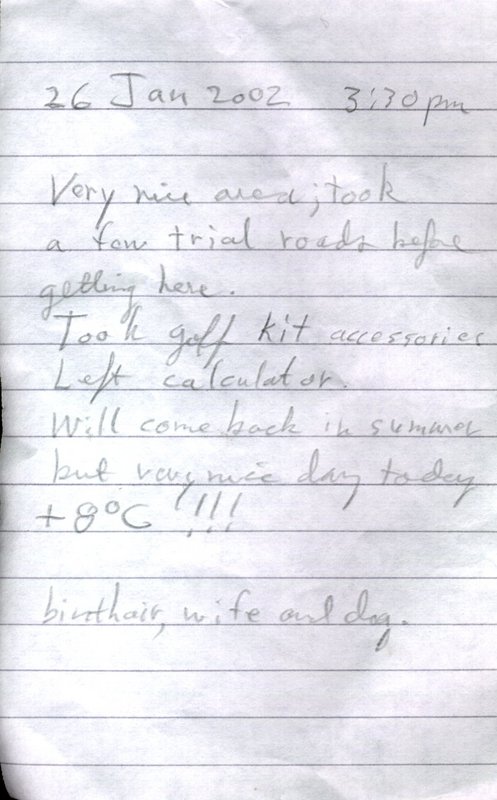 26 Jan 2002 3:30pm
Very nice area; took
a few trial roads before
getting here.
Took golf kit accessories
Left calculator.
Will come back in summer
but very nice day today
+8°C !!!
wife and dog.